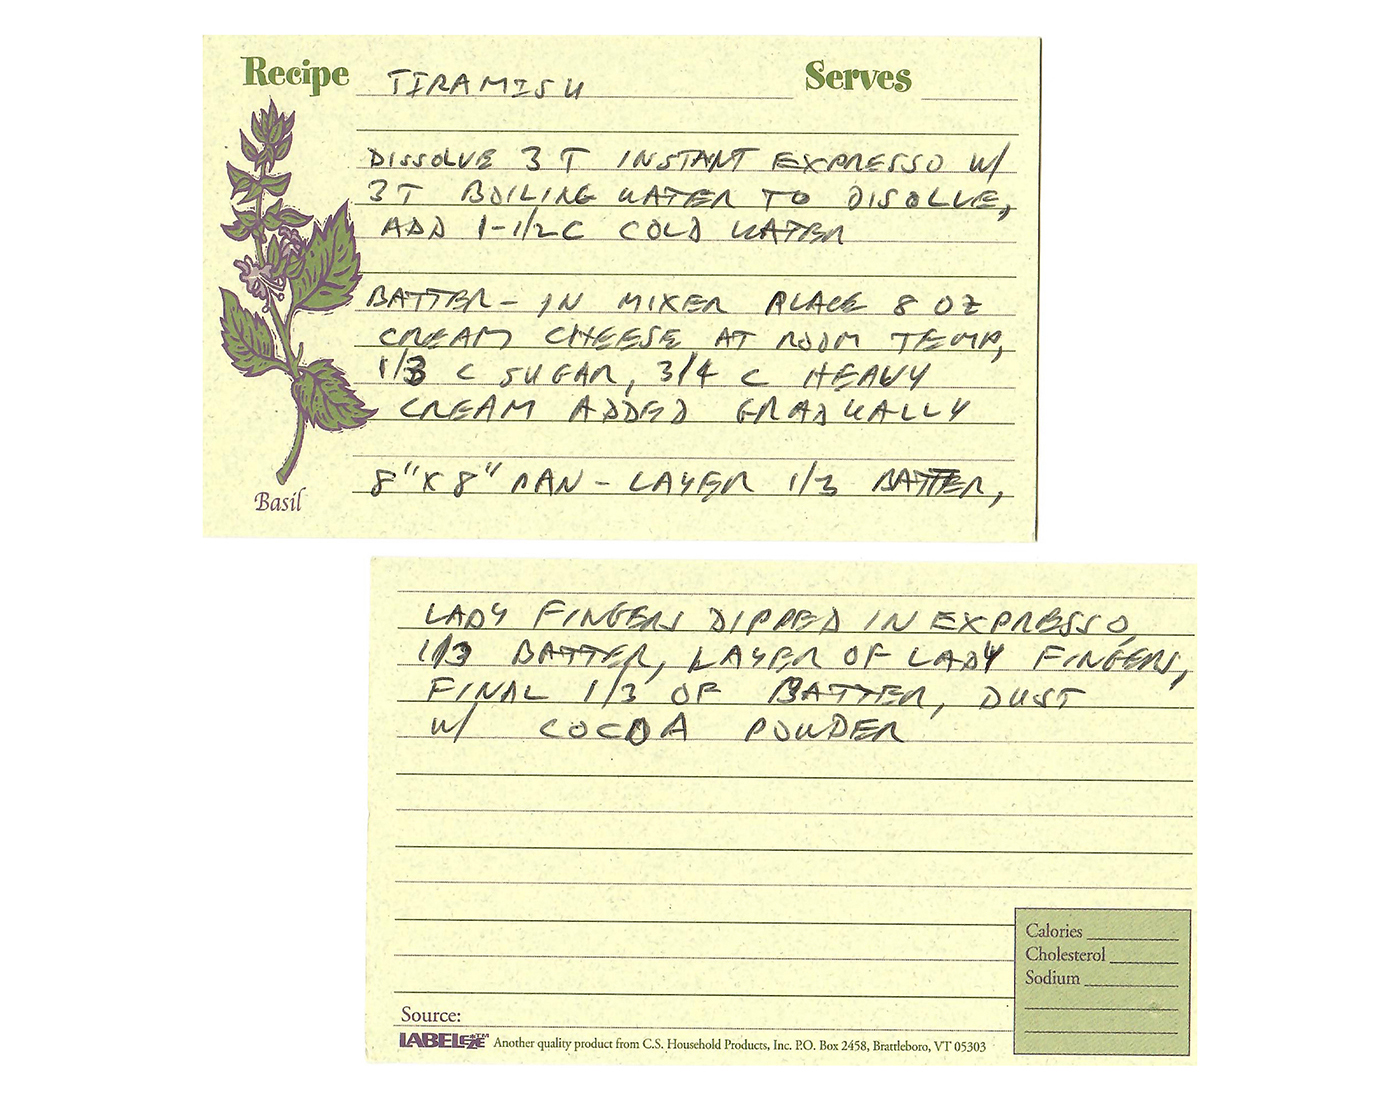 Recipe TIRAMISU Serves
DISSOLVE 3 T INSTANT EXPRESSO W/
3 T BOILING WATER TO DISOLVE,
ADD 1-1/2 C COLD WATER
BATTER - IN MIXER PLACE 8 OZ
CREAM CHEESE AT ROOM TEMP,
1/3 C SUGAR, 3/4 C HEAVY
CREAM ADDED GRADUALLY
8" X 8" PAN - LAYER 1/3 BATTER,
Basil
LADY FINGERS DIPPED IN EXPRESSO,
1/3 BATTER, LAYER OF LADY FINGERS,
FINAL 1/3 OF BATTER, DUST
W/ COCOA POWDER
Calories
Cholesterol
Sodium
Source:
LABELEZE™ Another quality product from C.S. Household Products, Inc. P.O. Box 2458, Brattleboro, VT 05303